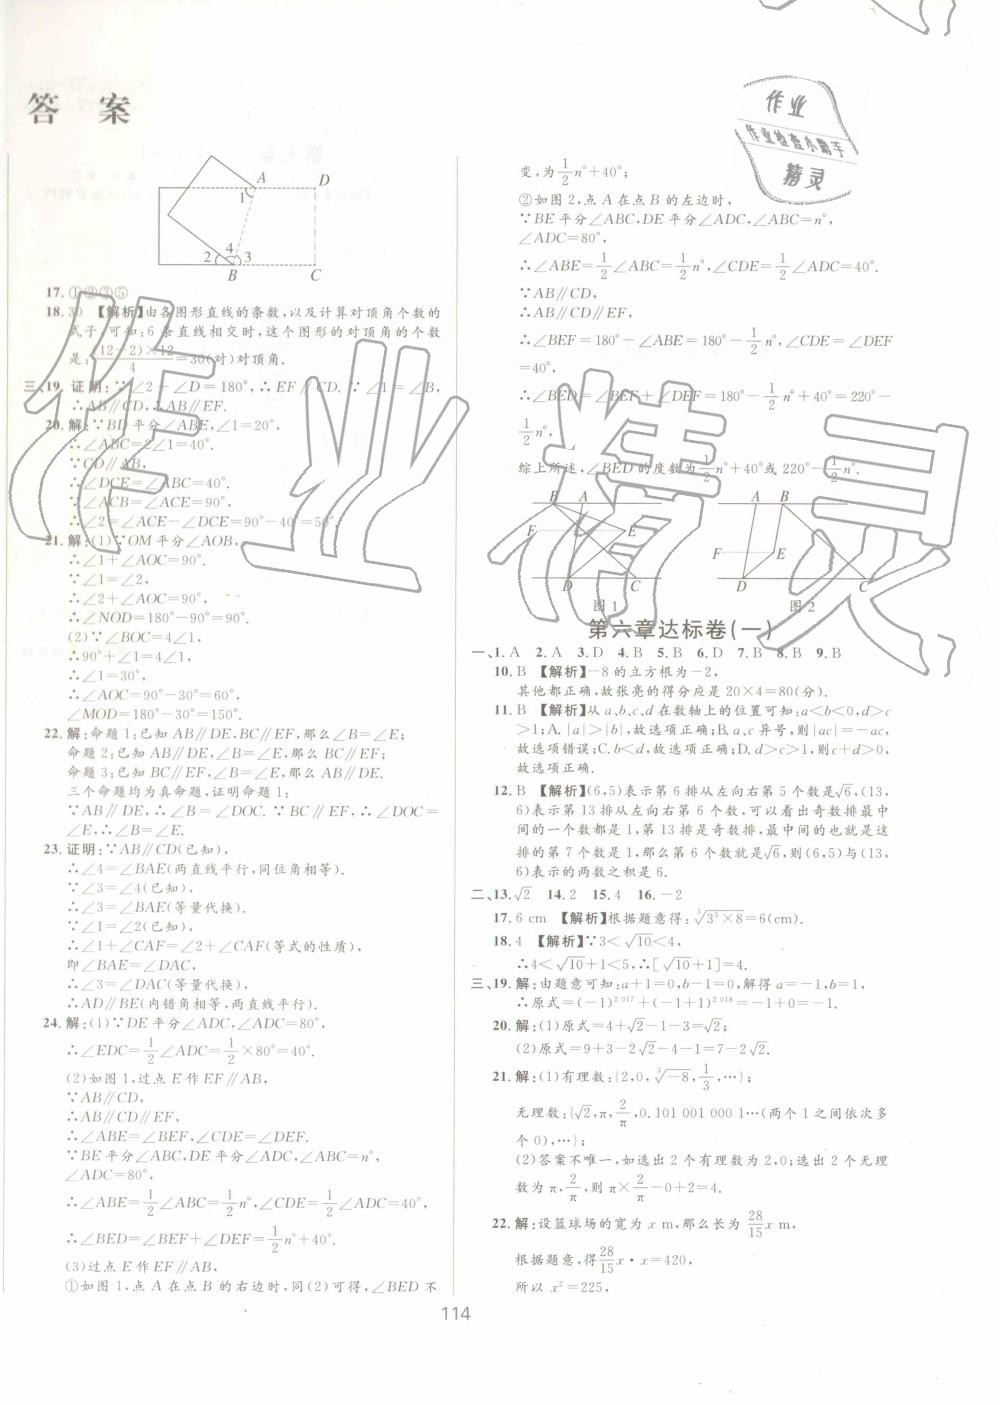 答 案
A
D
1
4
2
3
B
C
17. ①②③⑤
18. 30 【解析】由各图形直线的条数,以及计算对顶角个数的
式子,可知:6 条直线相交时,这个图形的对顶角的个数
是:(12-2)×12/4=30(对)对顶角.
三、19. 证明:∵∠2-∠D=180°,∴EF∥CD.∵∠1=∠B,
∴AB∥CD,∴AB∥EF.
20. 解:∵BD平分∠ABE,∠1=20°,
∴∠ABC=2∠1=40°.
∵CD∥AB,
∴∠DCE=∠ABC=40°.
∵∠ACB=∠ACE=90°,
∴∠2=∠ACE-∠DCE=90°-40°=50°.
21. 解:(1)∵OM平分∠AOB,
∴∠1+∠AOC=90°.
∵∠1=∠2,
∴∠2+∠AOC=90°,
∴∠NOD=180°-90°=90°.
(2)∵∠BOC=4∠1,
∴90°+∠1=4∠1,
∴∠1=30°,
∴∠AOC=90°-30°=60°,
∠MOD=180°-30°=150°.
22. 解:命题 1:已知 AB∥DE,BC∥EF,那么∠B=∠E;
命题 2:已知 AB∥DE,∠B=∠E,那么 BC∥EF;
命题 3:已知 BC∥EF,∠B=∠E,那么 AB∥DE.
三个命题均为真命题,证明命题 1:
∵AB∥DE,∴∠B=∠DOC. ∵BC∥EF,∴∠DOC
=∠E,∴∠B=∠E.
23. 证明:∵AB∥CD(已知),
∴∠4=∠BAE(两直线平行,同位角相等).
∵∠3=∠4(已知),
∴∠3=∠BAE(等量代换).
∵∠1=∠2(已知),
∴∠1+∠CAF=∠2+∠CAF(等式的性质),
即∠BAE=∠DAC,
∴∠3=∠DAC(等量代换),
∴AD∥BE(内错角相等,两直线平行).
24. 解:(1)∵DE平分∠ADC,∠ADC=80°,
∴∠EDC=1/2∠ADC=1/2×80°=40°.
(2)如图 1,过点 E 作 EF∥AB,
∵AB∥CD,
∴AB∥CD∥EF,
∴∠ABE=∠BEF,∠CDE=∠DEF.
∵BE平分∠ABC,DE平分∠ADC,∠ABC=n°,
∠ADC=80°,
∴∠ABE=1/2∠ABC=1/2n°,∠CDE=1/2∠ADC=40°,
∴∠BED=∠BEF+∠DEF=1/2n°+40°.
(3)过点 E 作 EF∥AB,
①如图 1,点 A 在点 B 的右边时,同(2)可得,∠BED 不
变,为1/2n°+40°;
②如图 2,点 A 在点 B 的左边时,
∵BE平分∠ABC,DE平分∠ADC,∠ABC=n°,
∠ADC=80°,
∴∠ABE=1/2∠ABC=1/2n°,∠CDE=1/2∠ADC=40°.
∵AB∥CD,
∴AB∥CD∥EF,
∴∠BEF=180°-∠ABE=180°-1/2n°,∠CDE=∠DEF
=40°,
∴∠BED=∠BEF+∠DEF=180°-1/2n°+40°=220°-
1/2n°,
综上所述,∠BED的度数为1/2n°+40°或 220°-1/2n°.
B A
F E
D C
图 1
A B
F E
D C
图 2
第六章达标卷(一)
一、1. A 2. A 3. D 4. B 5. B 6. D 7. B 8. B 9. B
10. B 【解析】-8 的立方根为-2,
其他都正确,故张亮的得分应是 20×4=80(分).
11. B 【解析】从 a、b、c、d 在数轴上的位置可知:a<b<0,d>c
>1;A. |a|>|b|,故选项正确;B. a、c 异号,则|ac|=-ac,
故选项错误;C. b<d,故选项正确;D. d>c>1,则c+d>0,
故选项正确.
12. B 【解析】(6,5)表示第 6 排从左向右第 5 个数是√6,(13,
6)表示第 13 排从左向右第 6 个数,可以看出奇数排最中
间的一个数都是 1,第 13 排是奇数排,最中间的也就是这
排的第 7 个数是 1,那么第 6 个数就是√6,则(6,5)与(13,
6)表示的两数之积是 6.
二、13. √2 14. 2 15. 4 16. -2
17. 6 cm 【解析】根据题意得:∛(3³×8)=6(cm).
18. 4 【解析】∵3<√10<4,
∴4<√10+1<5,∴[√10+1]=4.
三、19. 解:由题意可知:a+1=0,b-1=0,解得 a=-1,b=1,
∴原式=(-1)²⁰¹⁷+(-1+1)²⁰¹⁸=-1+0=-1.
20. 解:(1)原式=4+√2-1-3=√2;
(2)原式=9+3-2√2-4-1=7-2√2.
21. 解:(1)有理数:{2,0,∛-8,1/3,…};
无理数:{√2,π,2/π,0.101 001 000 1…(两个 1 之间依次多
个 0),…};
(2)答案不唯一,如选出 2 个有理数为 2,0;选出 2 个无理
数为 π,2/π,则 π×2/π-0+2=4.
22. 解:设篮球场的宽为 x m,那么长为28/15x m,
根据题意,得28/15x·x=420,
所以 x²=225,
114
作业
作业检查小帮手
精灵
作业精灵